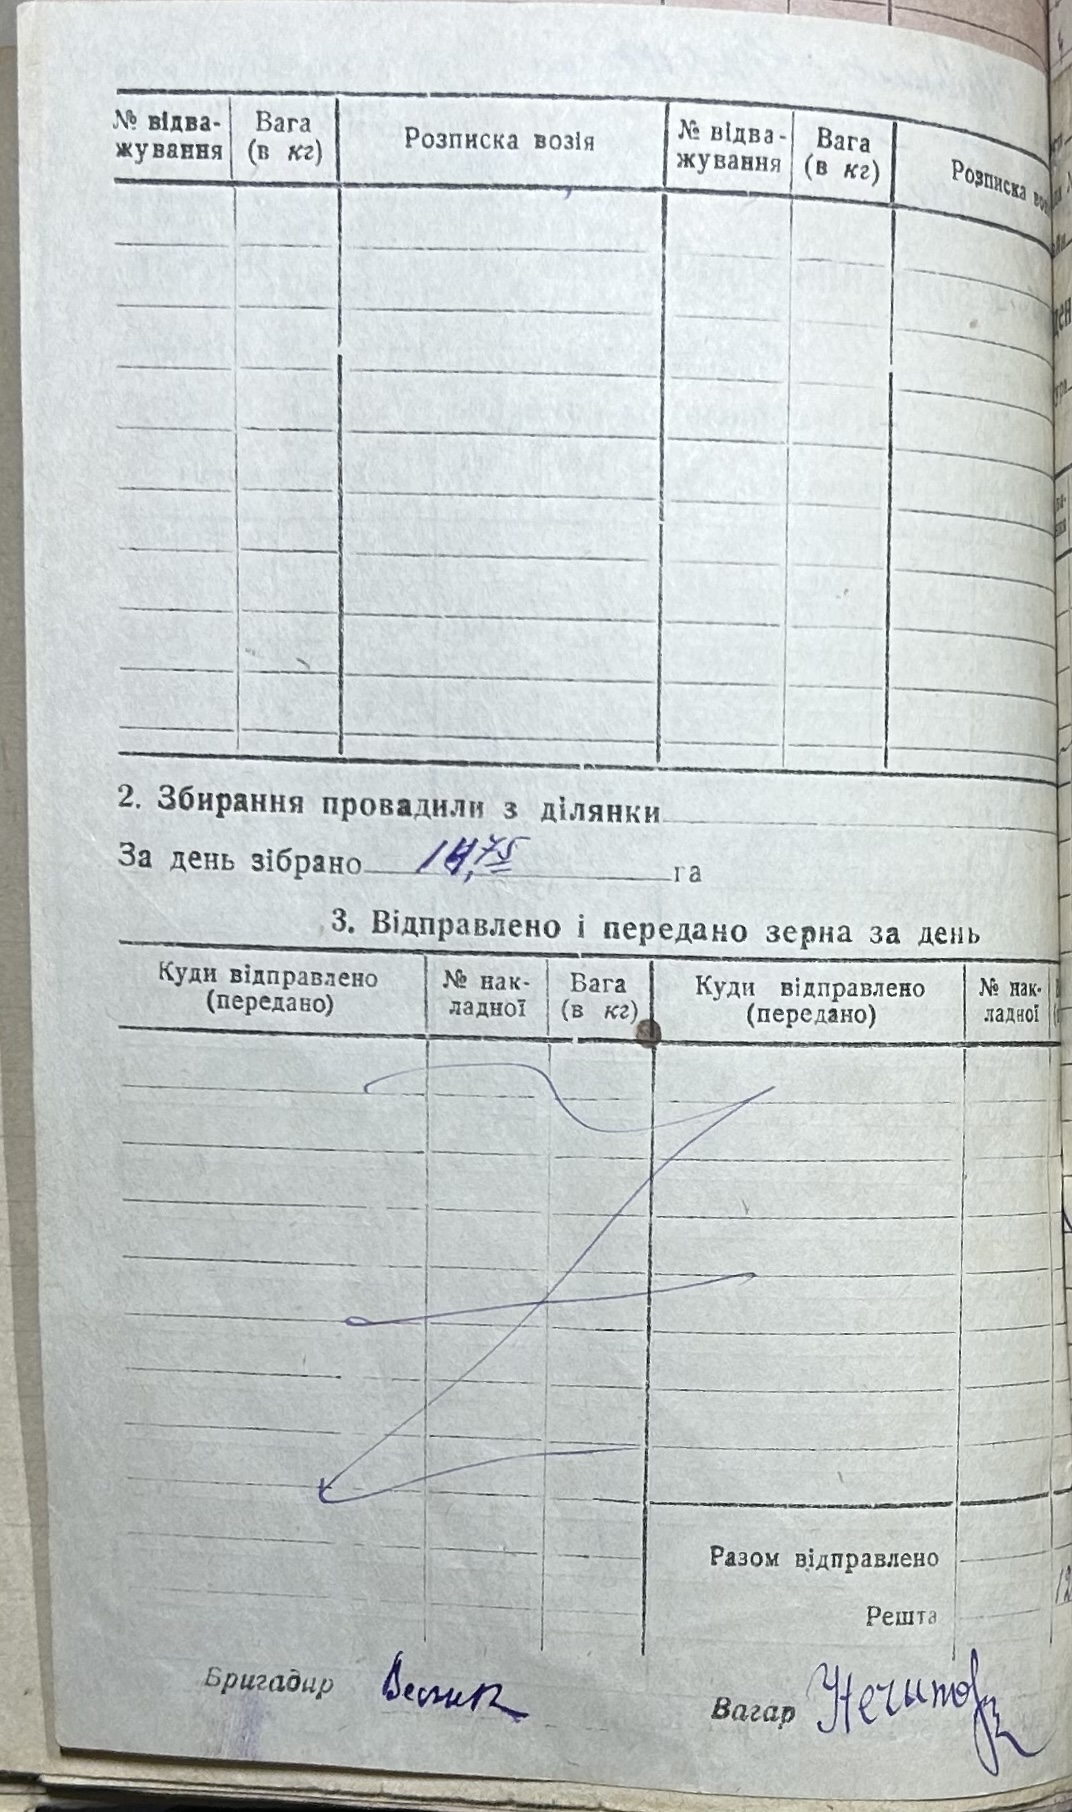 № відва-
жування
Вага
(в кг)
Розписка возія
№ відва-
жування
Вага
(в кг)
Розписка
2. Збирання провадили з ділянки
За день зібрано га
3. Відправлено і передано зерна за день
Куди відправлено
(передано)
№ нак-
ладної
Вага
(в кг)
Куди відправлено
(передано)
№ нак-
ладної
Разом відправлено
Решта
Бригадир
Вагар